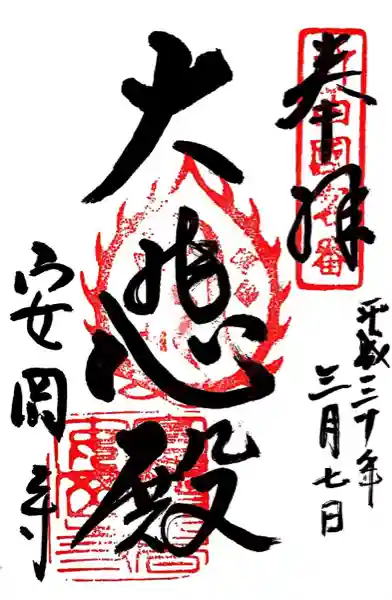 奉拝
平成三十年
三月七日
大悲殿
安岡寺